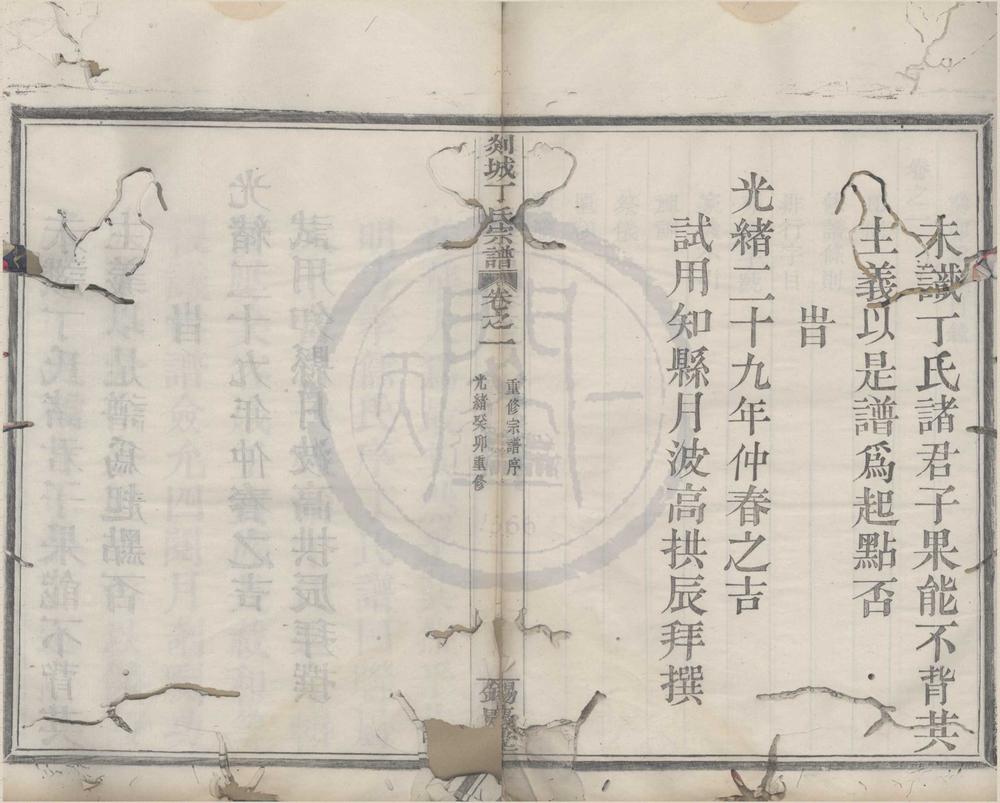 未識丁氏諸君子果能不背其
主義以是譜爲起點否
旹
光緒二十九年仲春之吉
試用知縣月波高拱辰拜撰
剡城丁氏宗譜
卷之一
重修宗譜序
光緒癸卯重修